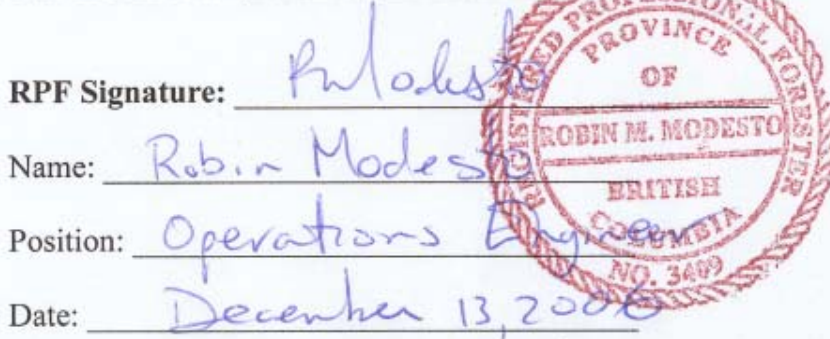 RPF Signature: RModesto
Name: Robin Modesto
Position: Operations Engineer
Date: December 13, 2006
REGISTERED PROFESSIONAL FORESTER
PROVINCE
OF
ROBIN M. MODESTO
BRITISH
COLUMBIA
NO. 3409